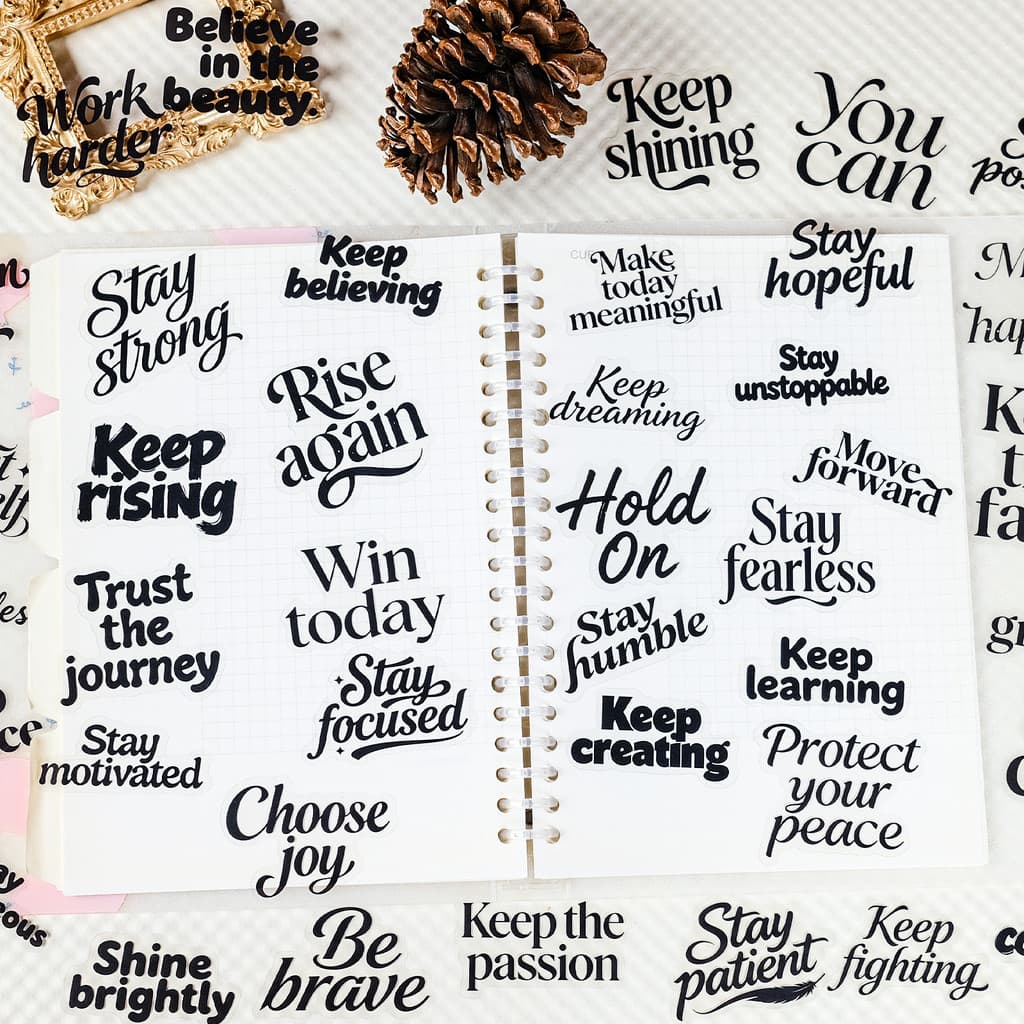 Believe
in the
beauty.
Work
harder
Keep
shining
You
can
Stay
strong
Keep
believing
Rise
again
Keep
rising
Win
today
Trust
the
journey
Stay
focused
Stay
motivated
Choose
joy
Make
today
meaningful
Stay
hopeful
Keep
dreaming
Stay
unstoppable
Move
forward
Hold
On
Stay
fearless
Stay
humble
Keep
learning
Keep
creating
Protect
your
peace
Shine
brightly
Be
brave
Keep the
passion
Stay
patient
Keep
fighting